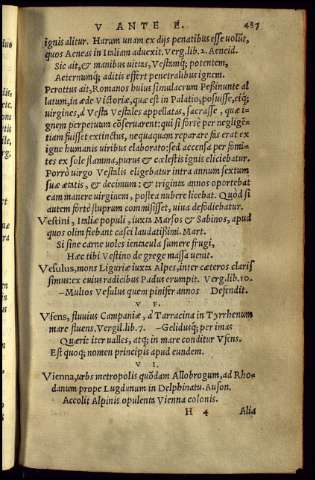 V ANTE E. 487
ignis alitur. Harum unam ex dijs penatibus esse voluit,
quos Aeneas in Italiam aduexit. Verg. lib. 2. Aeneid.
Sic ait, & manibus uittas, Vestamq; potentem,
Aeternumq; aditis effert penetralibus ignem.
Perottus ait, Romanos huius simulacrum Pessinunte al
latum, in aede Victoriae, quae est in Palatio, posuisse, eiq;
uirgines, à Vesta Vestales appellatas, sacrasse, quae i-
gnem perpetuum cōseruarent: qui si fortè per negligē-
tiam fuisset extinctus, nequaquam reparare fas erat ex
igne humanis uiribus elaborato: sed accensa per fomi-
tes ex sole flamma, purus & caelestis ignis eliciebatur.
Porrò uirgo Vestalis eligebatur intra annum sextum
suae aetatis, & decimum: & triginta annos oportebat
eam manere uirginem, postea nubere licebat. Quod si
autem fortè stuprum commisisset, uiua defodiebatur.
Vestini, Italiae populi, iuxta Marsos & Sabinos, apud
quos olim fiebant casei laudatissimi. Mart.
Si sine carne voles ientacula sumere frugi,
Haec tibi Vestino de grege massa venit.
Vesulus, mons Liguriae iuxta Alpes, inter caeteros claris
simus: ex cuius radicibus Padus erumpit. Verg. lib. 10.
—Multos Vesulus quem pinifer annos Defendit.
V F.
Vfens, fluuius Campaniae, à Tarracina in Tyrrhenum
mare fluens. Vergil. lib. 7. —Gelidusq; per imas
Quaerit iter valles, atq; in mare conditur Vfens.
Est quoq; nomen principis apud eundem.
V I.
Vienna, urbs metropolis quōdam Allobrogum, ad Rho-
danum prope Lugdunum in Delphinatu. Auson.
Accolit Alpinis opulenta Vienna colonis.
H 4 Alia